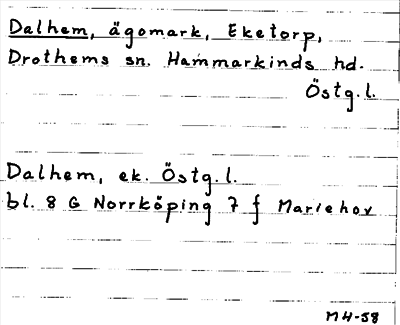 Dalhem, ägomark, Eketorp,
Drothems sn. Hammarkinds hd.
Östg.l.
Dalhem, ek. Östg.l.
bl. 8 G Norrköping 7 f Mariehov
M4-58